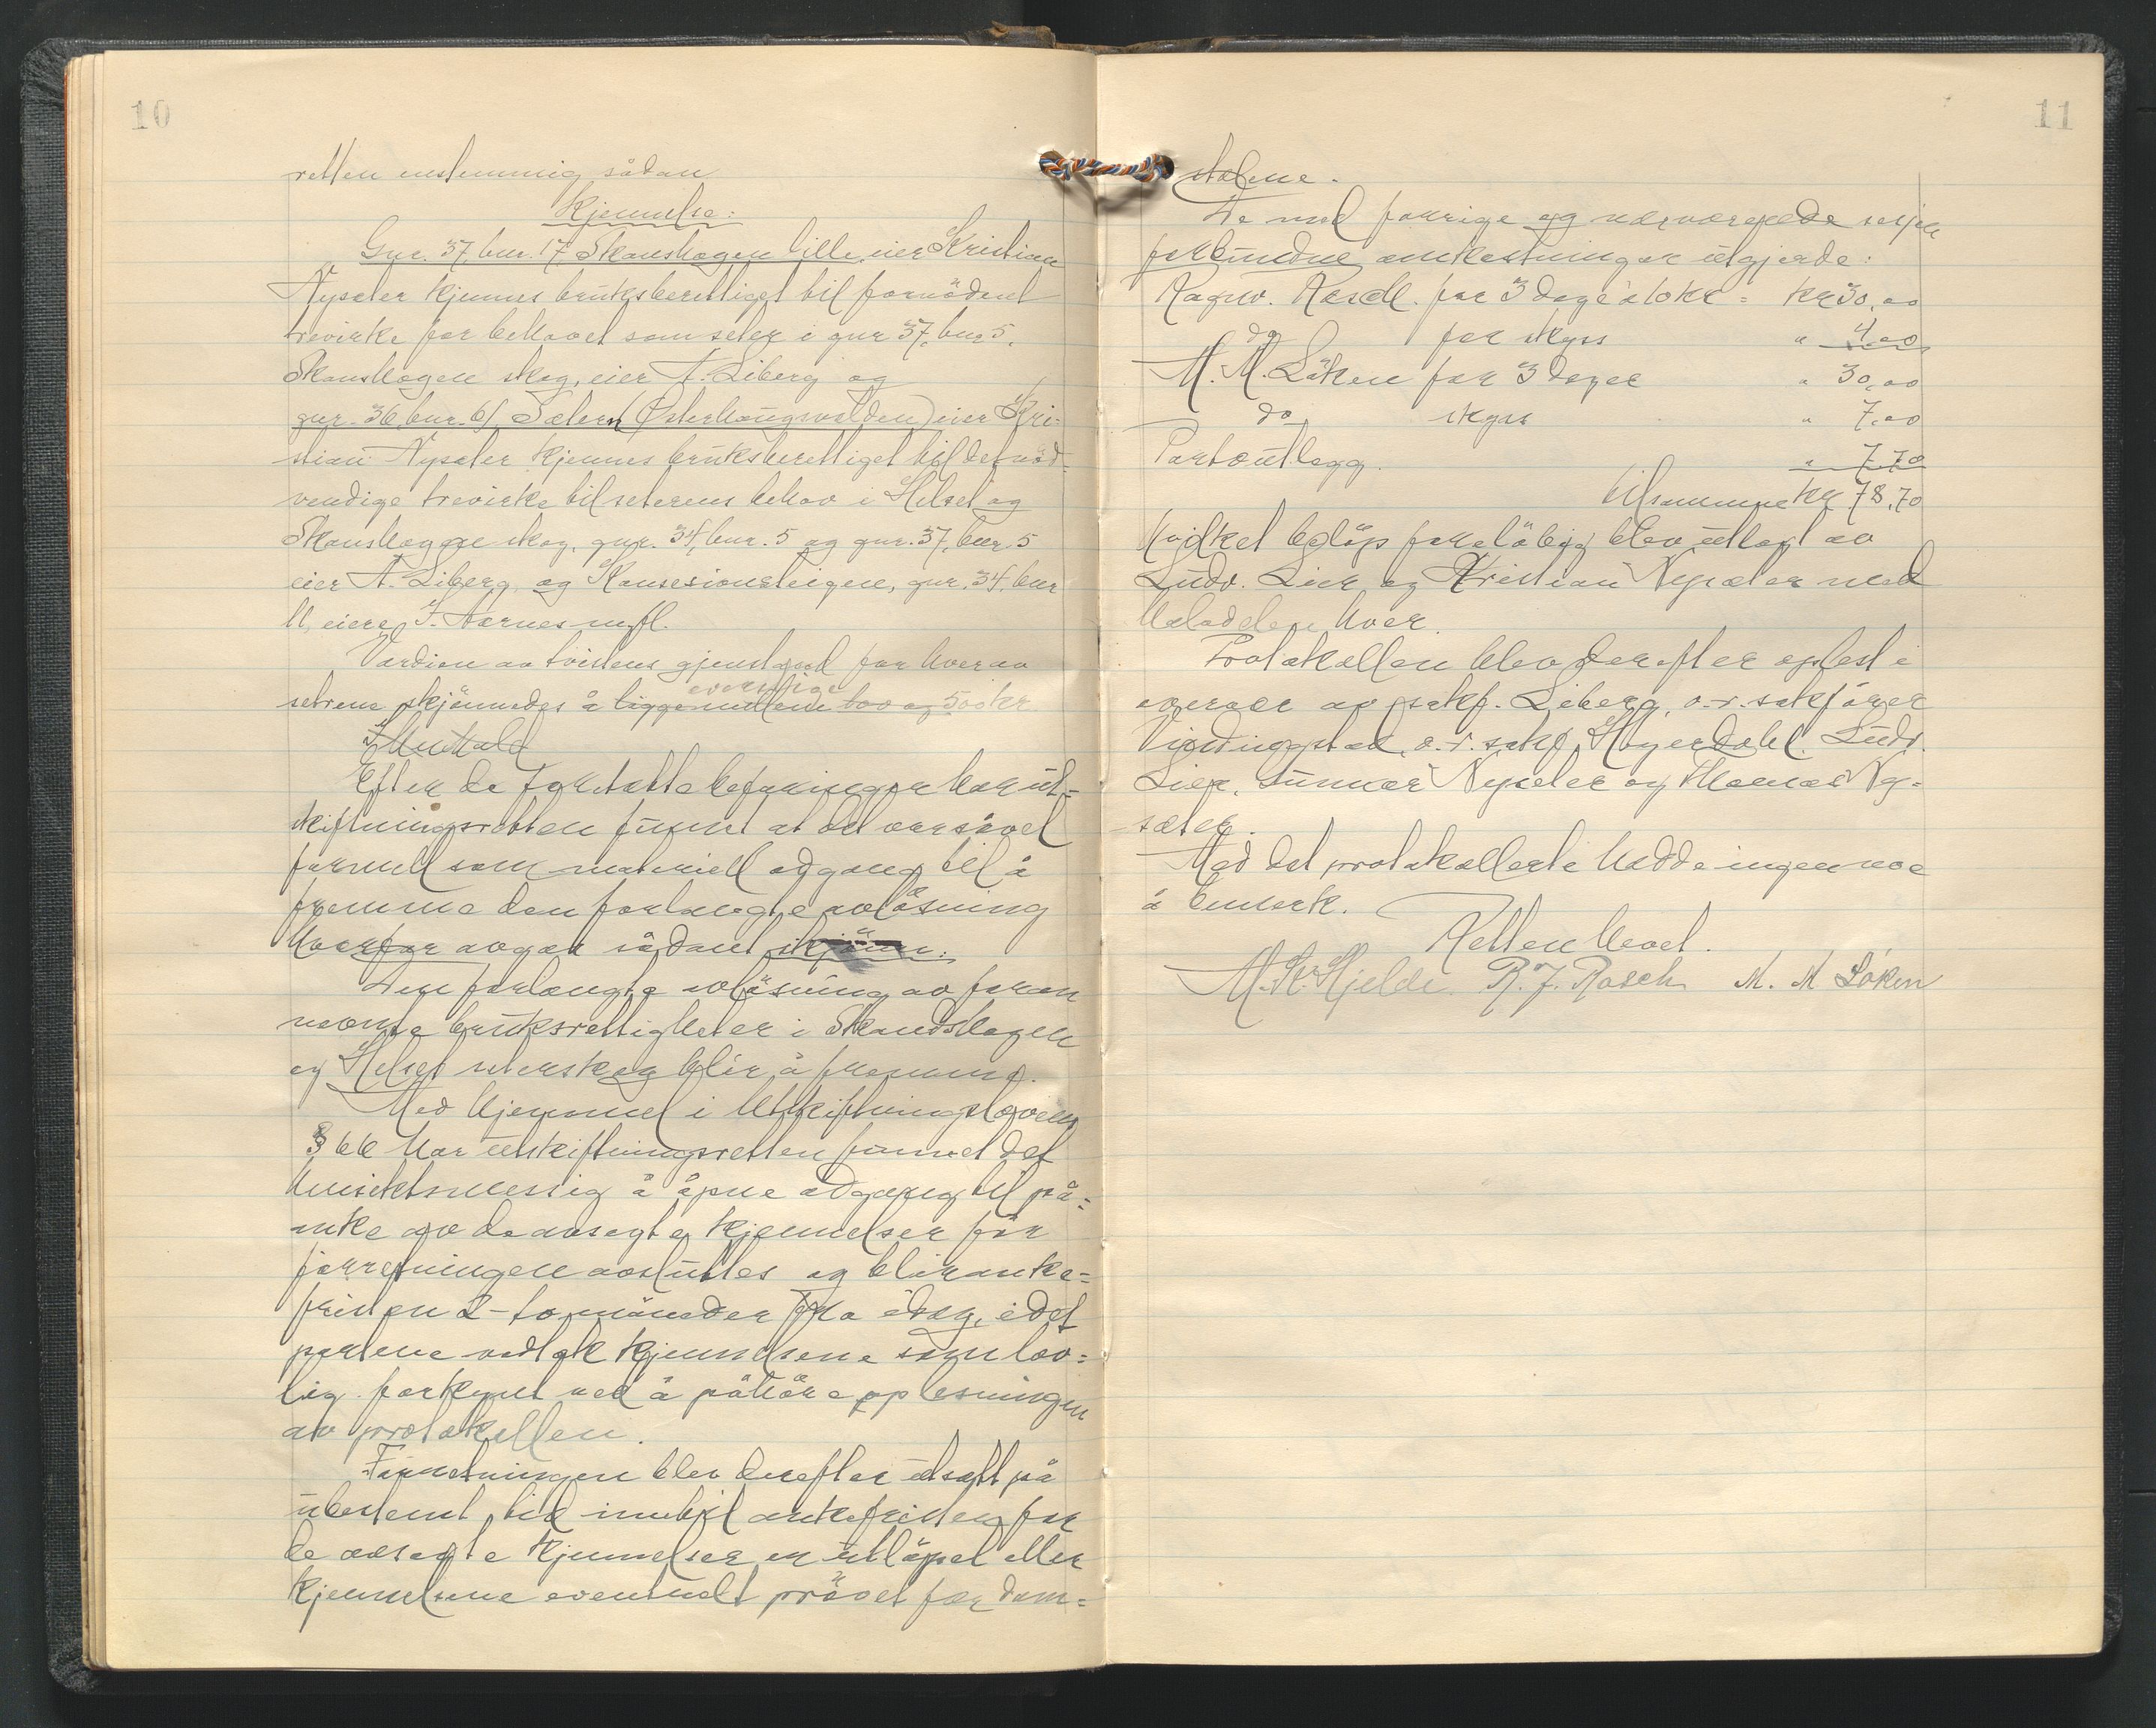 10
retten enstemmig sådan
Kjennelse:
Gnr. 37, bnr. 17 Skanshagen lille, eier Kristian
Nyseter kjennes bruksberettiget til fornödent
trevirke for behovet som seter i gnr 37, bnr 5,
Skanshagen skog, eier A. Liberg og
gnr. 36, bnr. 61 Sætern (Österhaugsvolden) eier Kri-
stian Nyseter kjennes bruksberettiget til det nöd-
vendige trevirke til seterens behov i Helset og
Skanshagen skog, gnr. 34, bnr. 5 og gnr. 37, bnr 5
eier A. Liberg, og Konsesionsteigen, gnr. 34, bnr
11, eiere J. Aarnes m. fl.
Verdien av tvistens gjenstand for hver av
overstige
setrene skjönnedes å ligge mellem 400 og 500 kr.
Efter de foretatte befaringer har ut-
skiftningsretten funnet at det var såvel
formell som materiell adgang til å
fremme den forlangte avlösning
hvorfor avgav sådant skjönn:
Den forlangte avlösning av foran
nevnte bruksrettigheter i Skandshagen
og Helset seterskog blir å fremme.
Med hjemmel i Utskiftningsloven
§ 66 har utskiftningsretten funnet det
hensiktsmessig å åpne adgang til på-
anke av de avsagte kjennelser för
forretningen avsluttes og blir anke-
fristen 2 - to måneder fra idag, idet
partene vedtok kjennelsene som lov-
lig forkynt ved å påhöre oplesningen
av protokollen.
Forretningen blev derefter utsatt på
ubestemt tid inntil ankefristen for
de avsagte kjennelser er utlöpet eller
kjennelsene eventuelt prövet for dom-
11
stolene.
De med forrige og nærværende sesjon
forbundne omkostninger utgjorde:
Ragnv. Rasch. for 3 dage à 10 kr = kr 30,00
do for skyss " 4,00
M. M. Löken for 3 dager " 30,00
do skyss " 7,00
Portoutlegg. " 7,70
Tilsammen kr 78,70
hvilket belöp forelöbig blev utlagt av
Ludv. Lier og Kristian Nyseter med
halvdelen hver.
Protokollen blev derefter oplest i
overvær av sakf. Liberg, o.r. sakförer
o.r. sakf. Hagerdahl, Ludv.
Lier, Gunnar Nyseter og Thomas Ny-
sæter.
Mod det protokollerte hadde ingen noe
å bemerk.
Retten hevet.
M. Kr. Hjelde R. J. Rasch M. M Löken